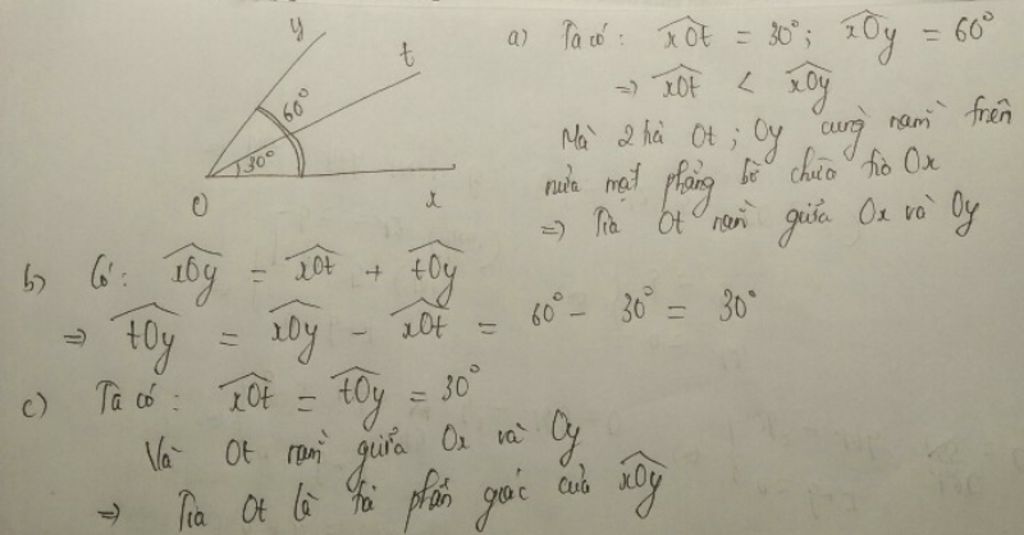 y
t
60°
30°
O
x
a) Ta có: xOt = 30°; xOy = 60°
=> xOt < xOy
Mà 2 tia Ot; Oy cùng nằm trên
nửa mặt phẳng bờ chứa tia Ox
=> Tia Ot nằm giữa Ox và Oy
b) Có: xOy = xOt + tOy
=> tOy = xOy - xOt = 60° - 30° = 30°
c) Ta có: xOt = tOy = 30°
Và Ot nằm giữa Ox và Oy
=> Tia Ot là tia phân giác của xOy